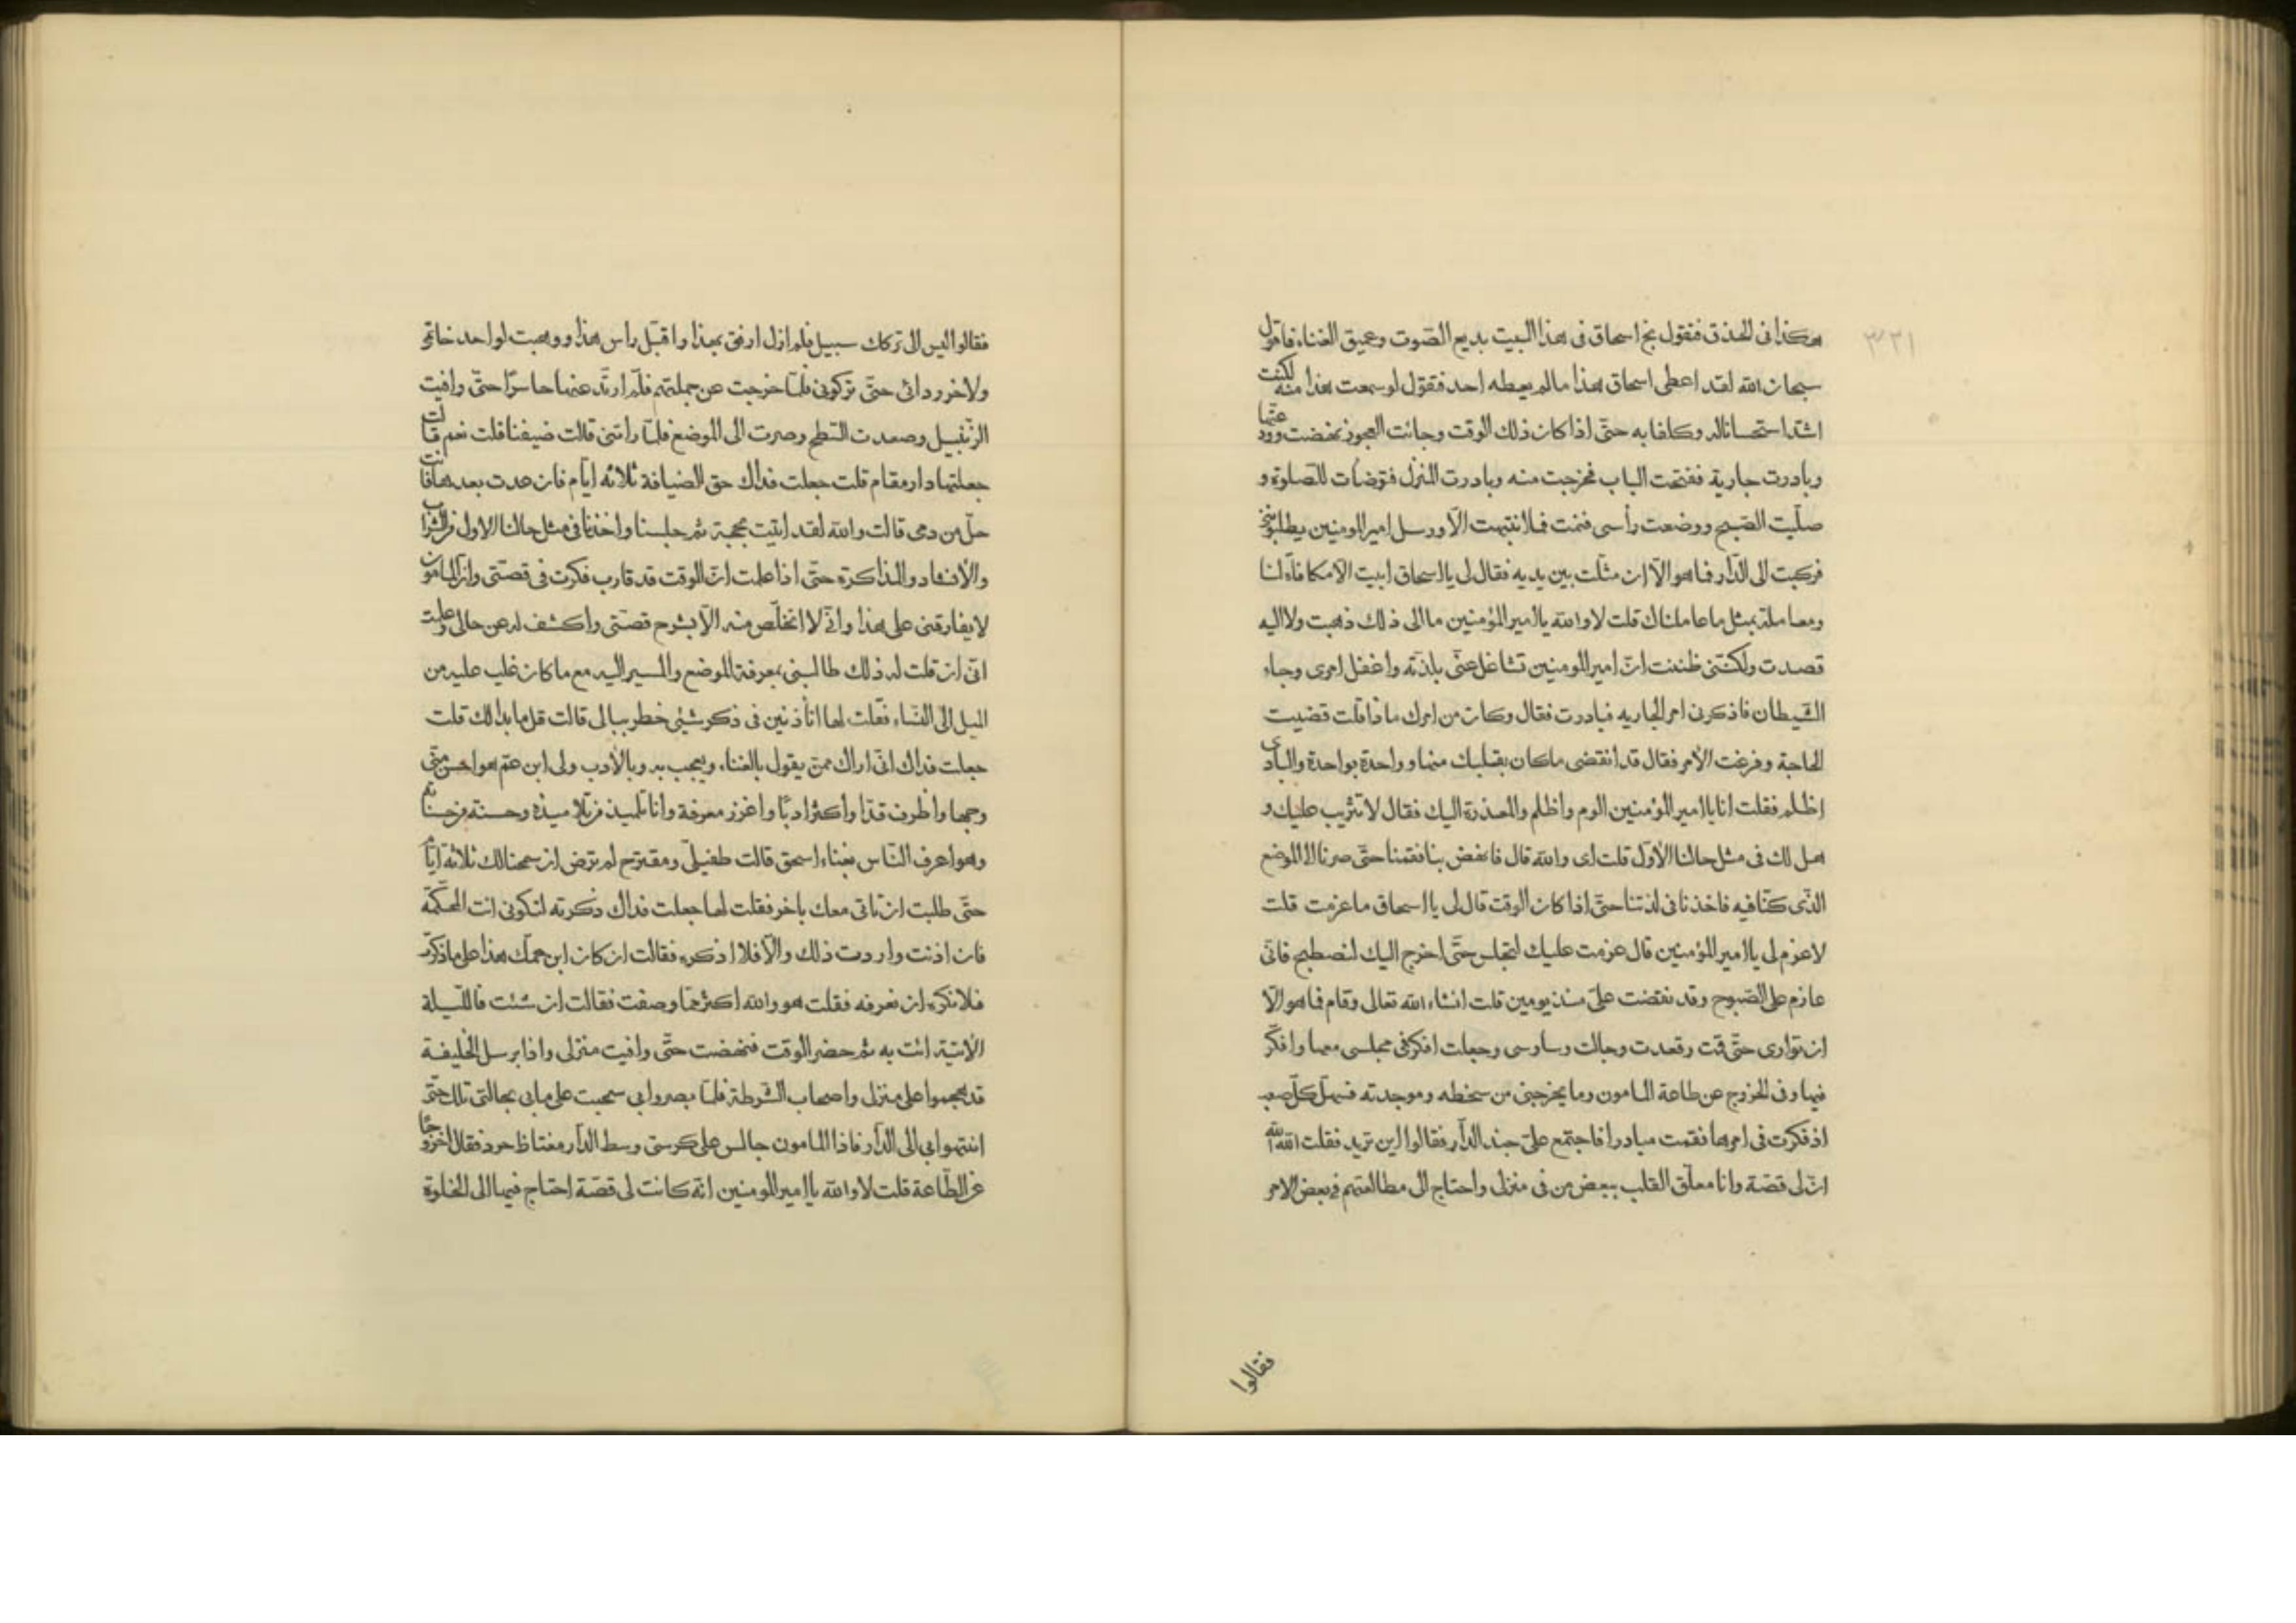 ٣٢١
هكذا فى الحذق فنقول بخ اسحاق فى هذا البيت بديع الصّوت وعميق الغناء فاقول
سبحان الله لقد اعطى اسحاق هذا مالم يعطه احد فنقول لو سمعت هذا منه لكنت
اشدّ استحسانا له وكلفا به حتّى اذا كان ذلك الوقت وجائت العجوز نهضت وودّعتها
وبادرت جارية ففتحت الباب فخرجت منه وبادرت المنزل فتوضأت للصلوة و
صلّيت الصّبح ووضعت رأسى فنمت فما انتبهت الّا ورسل امير المومنين يطلبونى
فركبت الى الدّار فما هو الّا ان مثلت بين يديه فقال لى يا اسحاق ابيت الّا مكافاة لنا
ومعاملة بمثل ما عاملناك قلت لا والله يا امير المؤمنين ما الى ذلك ذهبت ولا اليه
قصدت ولكننى ظننت انّ امير المومنين تشاغل عنّى بلذّته واغفل امرى وجاء
الشّيطان فاذكرنى امر الجاريه فبادرت فقال وكان من امرك ماذا قلت قضيت
الحاجة وفرغت الأمر فقال قد انقضى ما كان بقلبك منها وواحدة بواحدة والبادى
اظلم فقلت انا يا امير المؤمنين الوم واظلم والمعذرة اليك فقال لا تثريب عليك و
هل لك فى مثل حالنا الأوّل قلت اى والله قال فانهض بنا فقمنا حتّى صرنا الى الموضع
الذّى كنّا فيه فاخذنا فى لذتنا حتّى اذا كان الوقت قال لى يا اسحاق ما عزمت قلت
لا عزم لى يا امير المؤمنين قال عزمت عليك لتجلس حتّى اخرج اليك لنصطبح فانّى
عازم على الصّبوح وقد نغضت علىّ منذ يومين قلت انشاء الله تعالى وقام فما هو الّا
ان توارى حتّى قمت وقعدت وجالت وساوسى وجعلت افكر فى مجلسى معها وافكّر
فيها وفى الخروج عن طاعة المامون وما يخرجنى من سخطه وموجدته فسهل كلّ صعب
اذ فكرت فى امرها فقمت مبادرا فاجتمع علىّ جند الدّار فقالوا اين تريد فقلت الله الله
انّ لى قصّة وانا معلّق القلب ببعض من فى منزلى واحتاج الى مطالعتهم فى بعض الامر
فقالوا
فقالوا ليس الى تركك سبيل فلم ازل ارفق بهذا واقبّل راس هذا ووهبت لواحد خاتمى
ولاخر ردائى حتّى تركونى فلمّا خرجت عن جملتهم فلم ارتد عنها حاسرّا حتّى وافيت
الزنبيل وصعدت السّطح وصرت الى الموضع فلمّا راتنى قالت ضيفنا قلت نعم قالت
جعلتها دار مقام قلت جعلت فداك حق الضيافة ثلاثه ايّام فان عدت بعدها فانت
حلّ من دمى قالت والله لقد اتيت بحجة ثم جلسنا واخذنا فى مثل حالنا الاول من الشراب
والأنشاد والمذاكرة حتّى اذا علمت انّ الوقت قد قارب فكرت فى قصّتى وان المامون
لا يفارقنى على هذا وانّى لا اتخلّص منه الّا بشرح قصّتى واكشف له عن حالى وعلمت
انّى ان قلت له ذلك طالبنى بمعرفة الموضع والمسير اليه مع ما كان غلب عليه من
الميل الى النّساء فقلت لها اتأذنين فى ذكر شئى خطر ببالى قالت قل ما بدا لك قلت
جعلت فداك انّى اراك ممّن يقول بالغناء ويعجب به وبالأدب ولى ابن عمّ هو احسن منّى
وجها واظرف قدّا واكثر ادبًا واغزر معرفة وانا تلميذ من تلاميذه وحسنة من حسناته
وهو اعرف النّاس بغناء اسحق قالت طفيلىّ ومقترح لم ترض ان سمحنا لك ثلاثة ايّام
حتّى طلبت ان تاتى معك باخر فقلت لها جعلت فداك ذكرته لتكونى انت المحكّمة
فان اذنت واردت ذلك والّا فلا اذكره فقالت ان كان ابن عمّك هذا على ما ذكرت
فلا نكره ان نعرفه فقلت هو والله اكثر ممّا وصفت فقالت ان شئت فاللّيلة
الأتية ائت به ثم حضر الوقت فنهضت حتّى وافيت منزلى واذا برسل الخليفة
قد هجموا على منزلى واصحاب الشّرطة فلمّا بصروا بى سحبت على ما بى بحالتى تلك حتّى
انتهوا بى الى الدّار فاذا المامون جالس على كرسىّ وسط الدّار مغتاظ حرد فقال اخروجًا
عن الطّاعة قلت لا والله يا امير المومنين انّه كانت لى قصّة احتاج فيها الى الخلوة